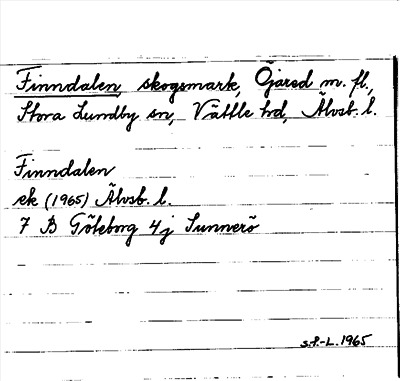 Finndalen, skogsmark, Öjared m. fl.,
Stora Lundby sn, Vättle hd, Älvsb. l.
Finndalen
ek (1965) Älvsb. l.
7 B Göteborg 4j Sunnerö
S.P.-L. 1965